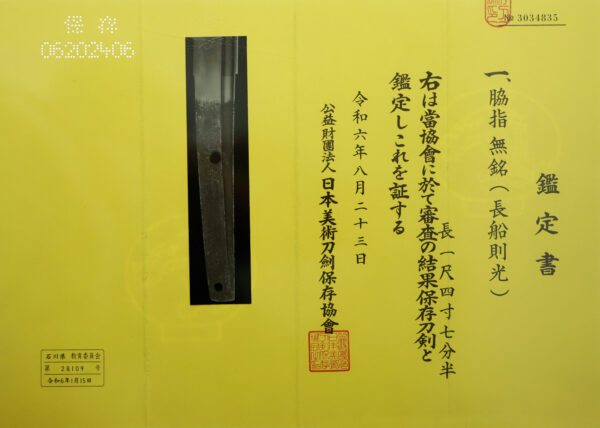 № 3034835
鑑定書
一、脇指 無銘(長船則光)
長一尺四寸七分半
右は當協會に於て審査の結果保存刀剣と
鑑定しこれを証する
令和六年八月二十三日
公益財團法人 日本美術刀劍保存協會
保存
06202406
石川県 教育委員会
第 28109 号
令和6年1月15日